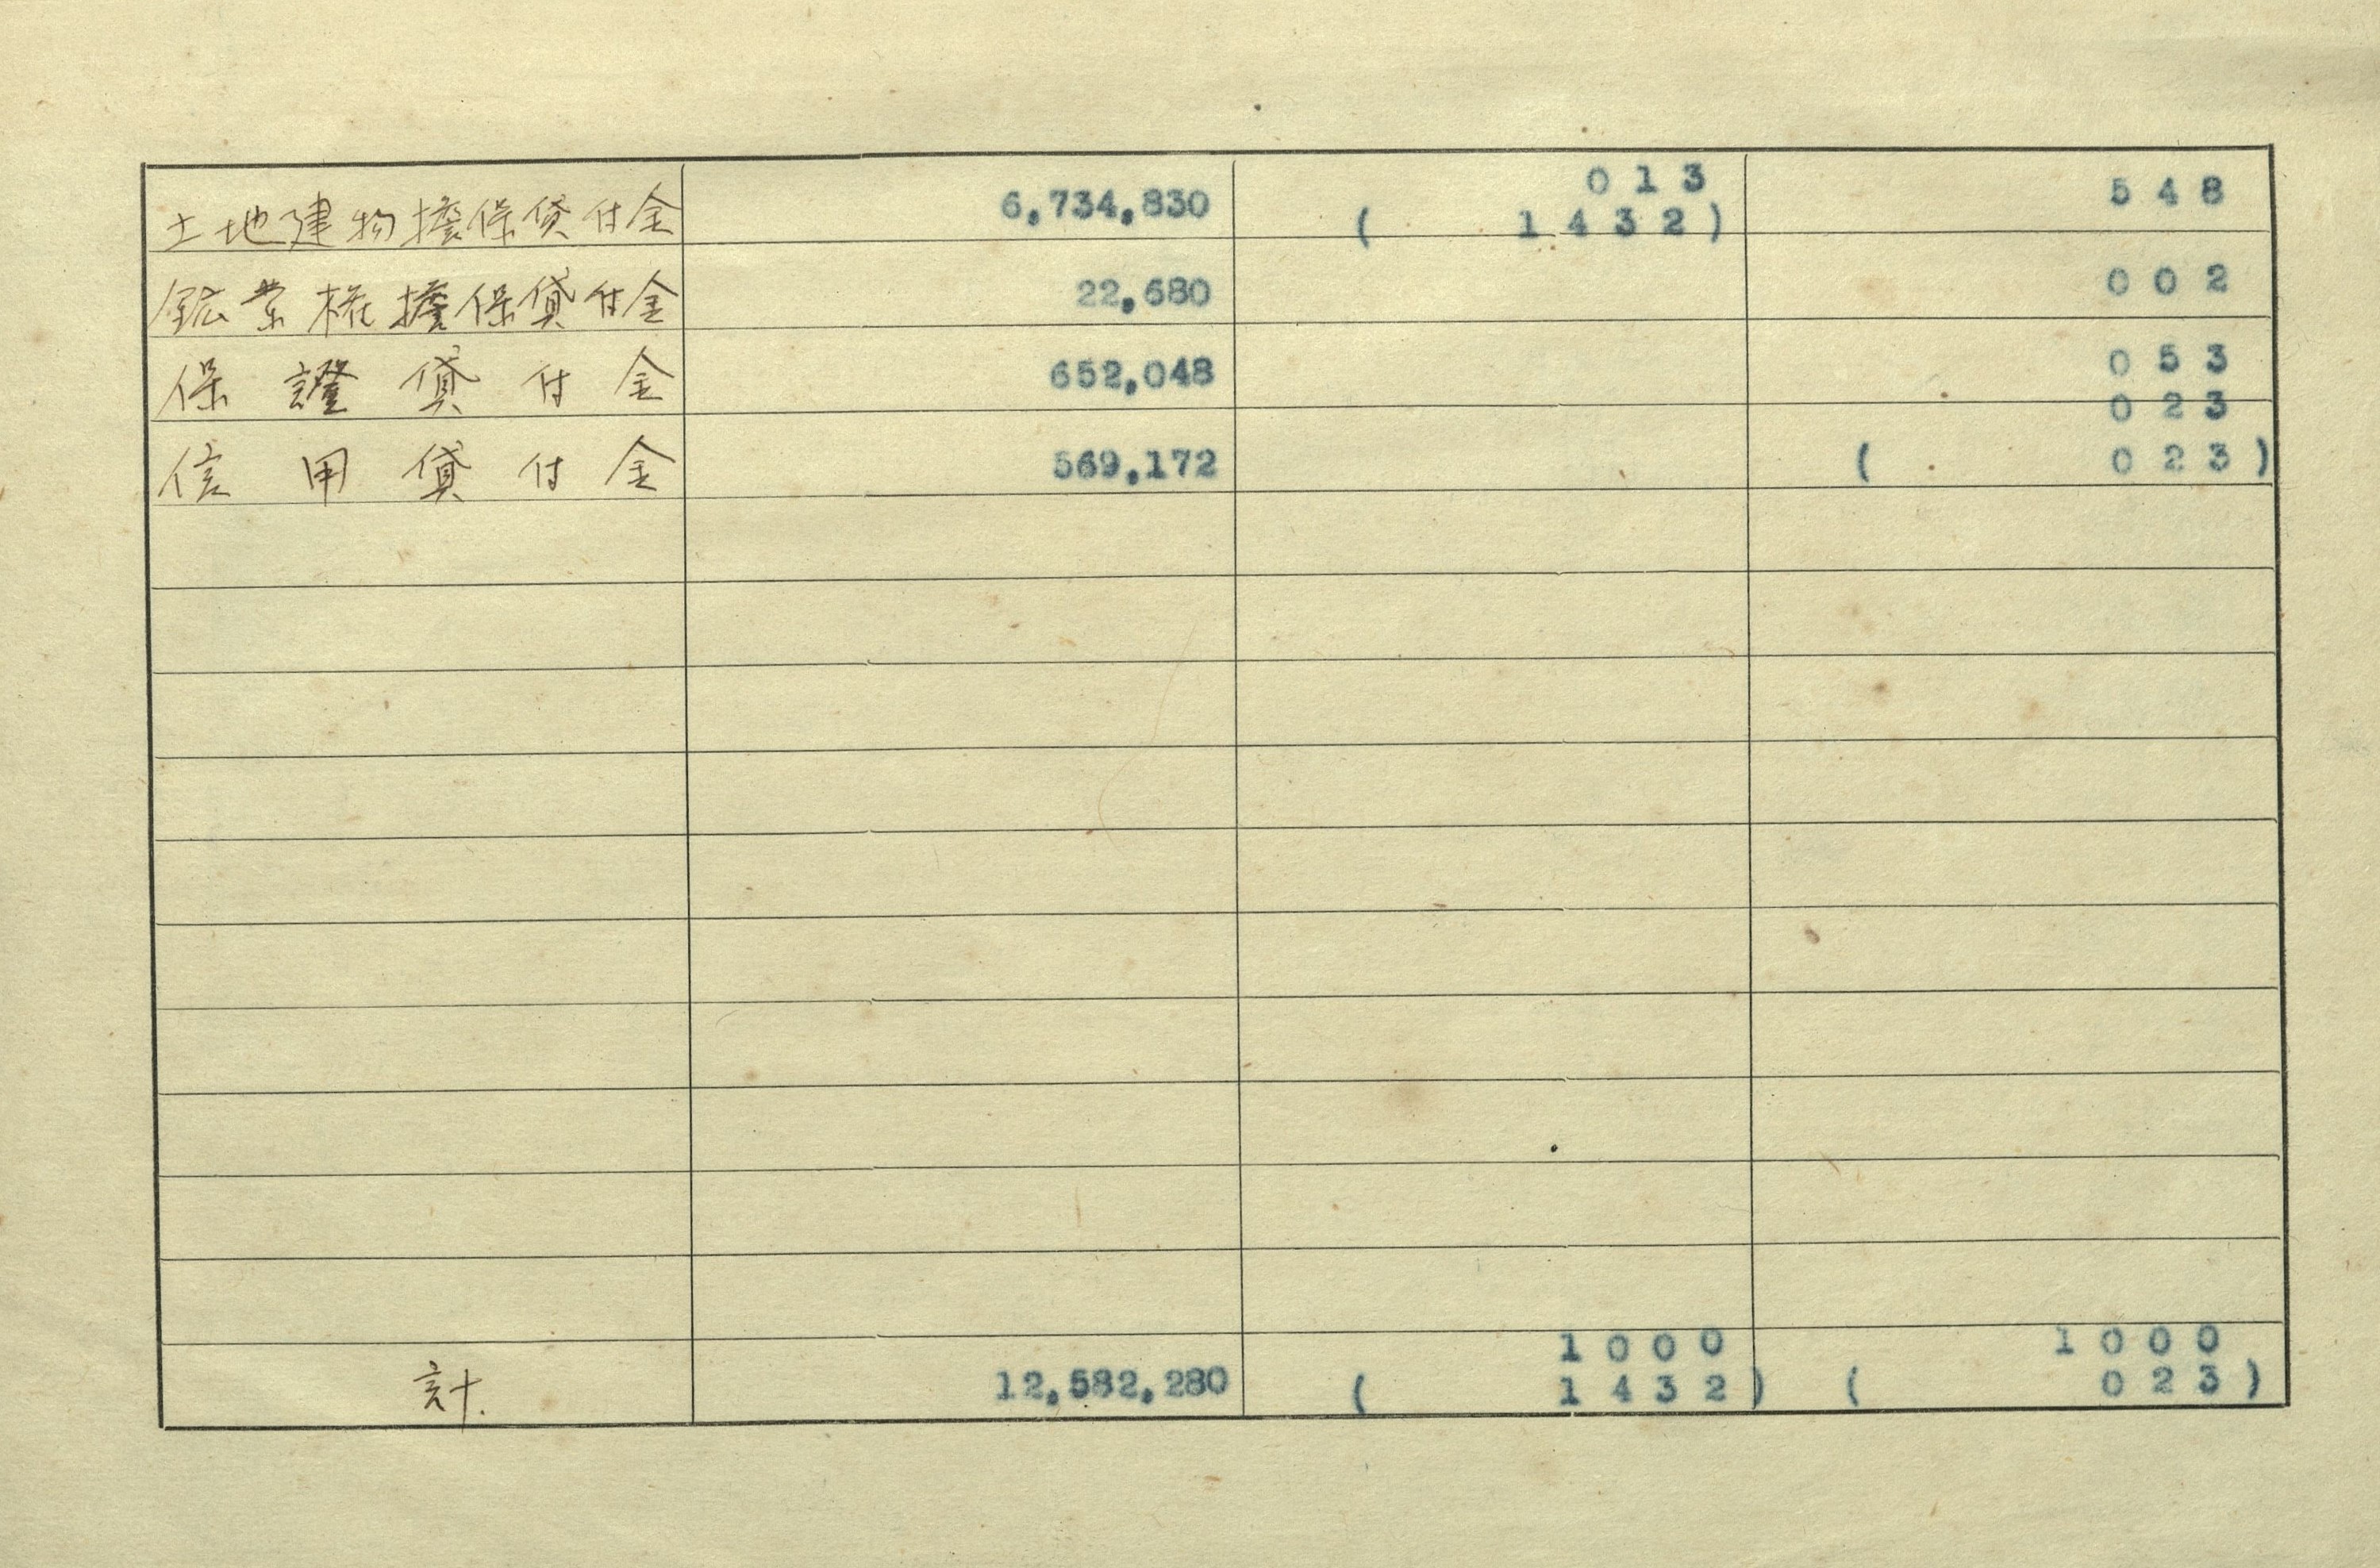 土地建物擔保貸付金 6,734,830 013 548
( 1432)
鉱業権擔保貸付金 22,680 002
保證貸付金 652,048 053
023
信用貸付金 569,172 ( 023)
1000 1000
計 12,582,280 ( 1432) ( 023)